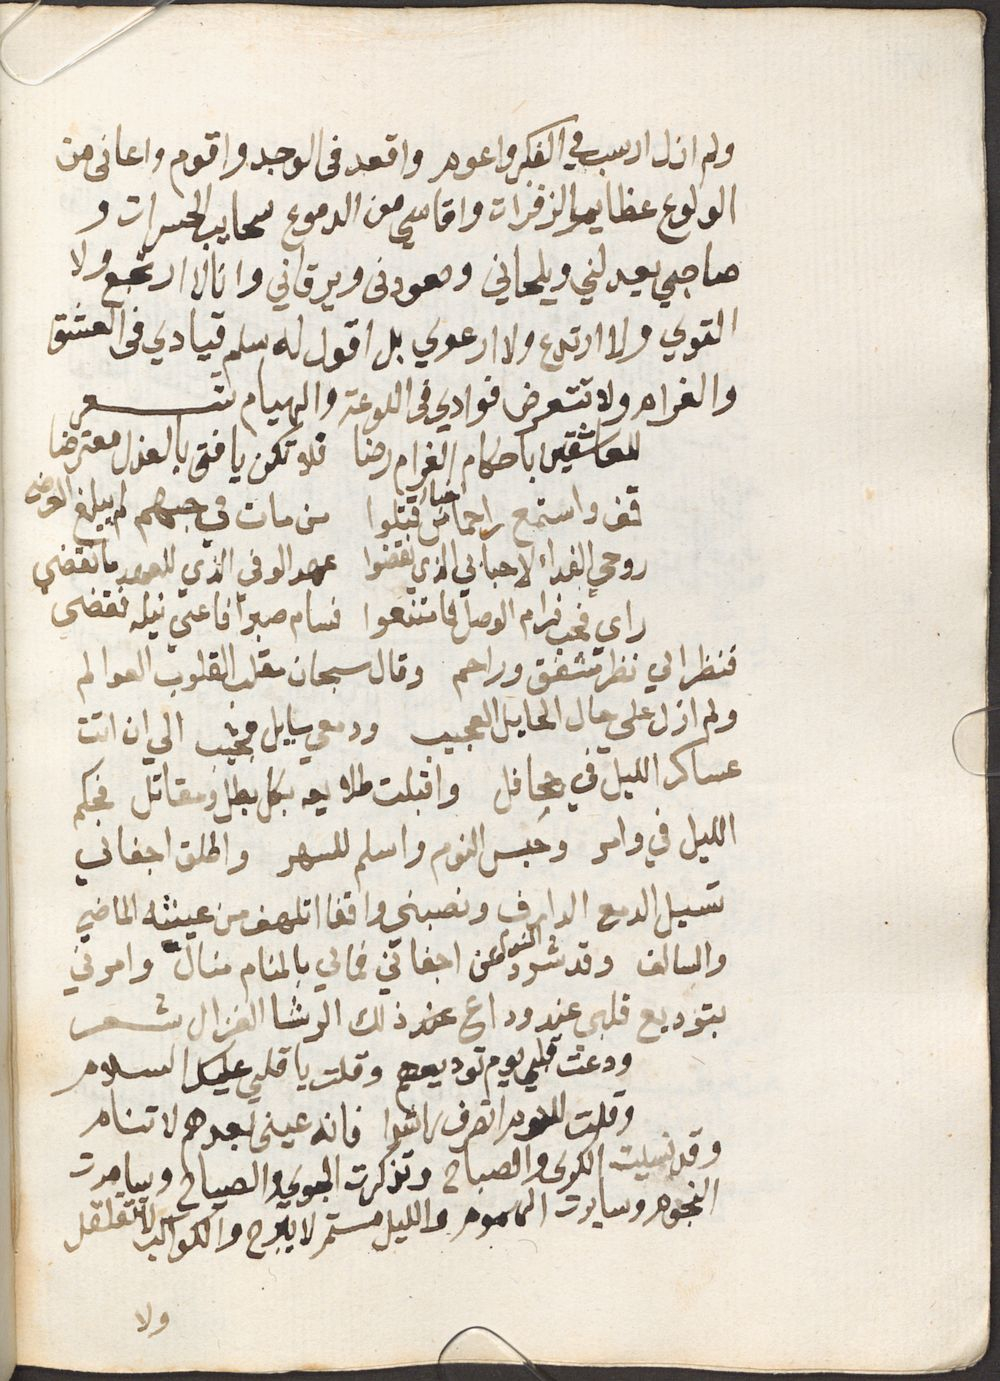 ولم ازل ارسب في الفكر واعوم واقعد في الوجد واقوم واعاني من
الولوع عظايم الزفرات واقاسي من الدموع سحايب الحسرات و
صاحبي يعدلني ويلحاني ويعودني ويرقاني وانا لا ارتجع ولا
التوي ولا ارتدع ولا ارعوي بل اقول له سلم قيادي في العشق
والغرام ولا تتعرض فوادي في اللوعة والهيام شعر
للعاشقين باحكام الغرام رضا فلا تكن يا فتى بالعذل معترضا
قف واستمع راحما اخبار من قتلوا من مات في حبهم لم يبلغ الغرضا
روحي الفداء لاحبابي الذي نقضوا عهد الوفي الذي للعهد ما نقضي
راي فحب فرام الوصل فامتنعوا فسام صبرا فاعيى نيله فقضى
فنظر الي نظر مشفق وراحم وقال سبحان مقلب القلوب العوالم
ولم ازل على حال الحايل العجيب ودمعي سايل مجيب الي ان اتت
عساكر الليل في جحافل واقبلت طلايعه بكل بطل ومقاتل فحكم
الليل في وامر وحبس النوم واسلم للسهر واطلق اجفاني
تسيل الدمع الدارف ونصبني واقفا اتلهف من عيشه الماضي
والسالف وقد شرد النوم عن اجفاني فمالي بالمنام منال وامرني
بتوديع قلبي عند وداع عند ذلك الرشا الغزال شعر
ودعت قلبي يوم توديعهم وقلت يا قلبي عليك السلام
وقلت للنوم انصرف راشدا فانه عيني بعدهم لا تنام
وقد نسيت الكرى والصباح وتذكرت الجوي والصياح وسامرت
النجوم وسايرت الهموم والليل مستمر لا يبرح والكواكب لا تتقلقل
ولا